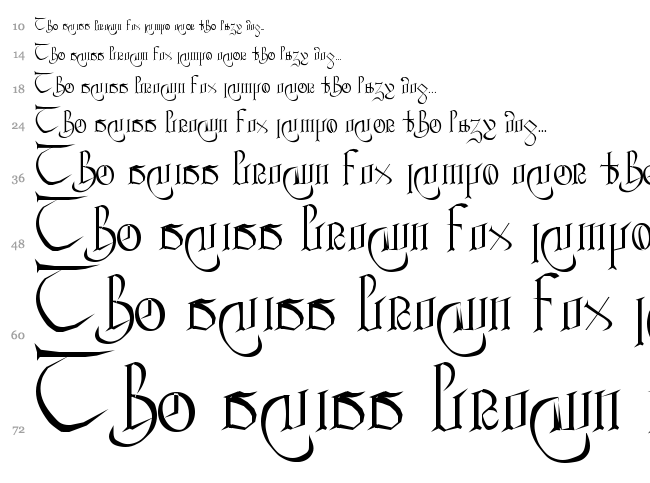 10 The quick brown fox jumps over the lazy dog...
14 The quick brown fox jumps over the lazy dog...
18 The quick brown fox jumps over the lazy dog...
24 The quick brown fox jumps over the lazy dog...
36 The quick brown fox jumps over the
48 The quick brown fox jump
60 The quick brown fox
72 The quick brown